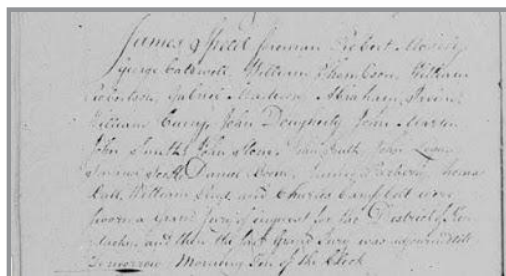 James Speed foreman Robert Mosely
George Caldwell, William Thomson, William
Robertson, Gabriel Madison Abraham Irvine
William Curry, John Dougherty John Martin
John Smith, John Stone, John Logan
Samuel Scott Daniel Boon, James
Ball, William and Charles Campbell were
sworn a Grand Jury of inquest for the District of Ken
tucky and then the last Grand Jury was adjourned till
Tomorrow Morning Ten of the Clock